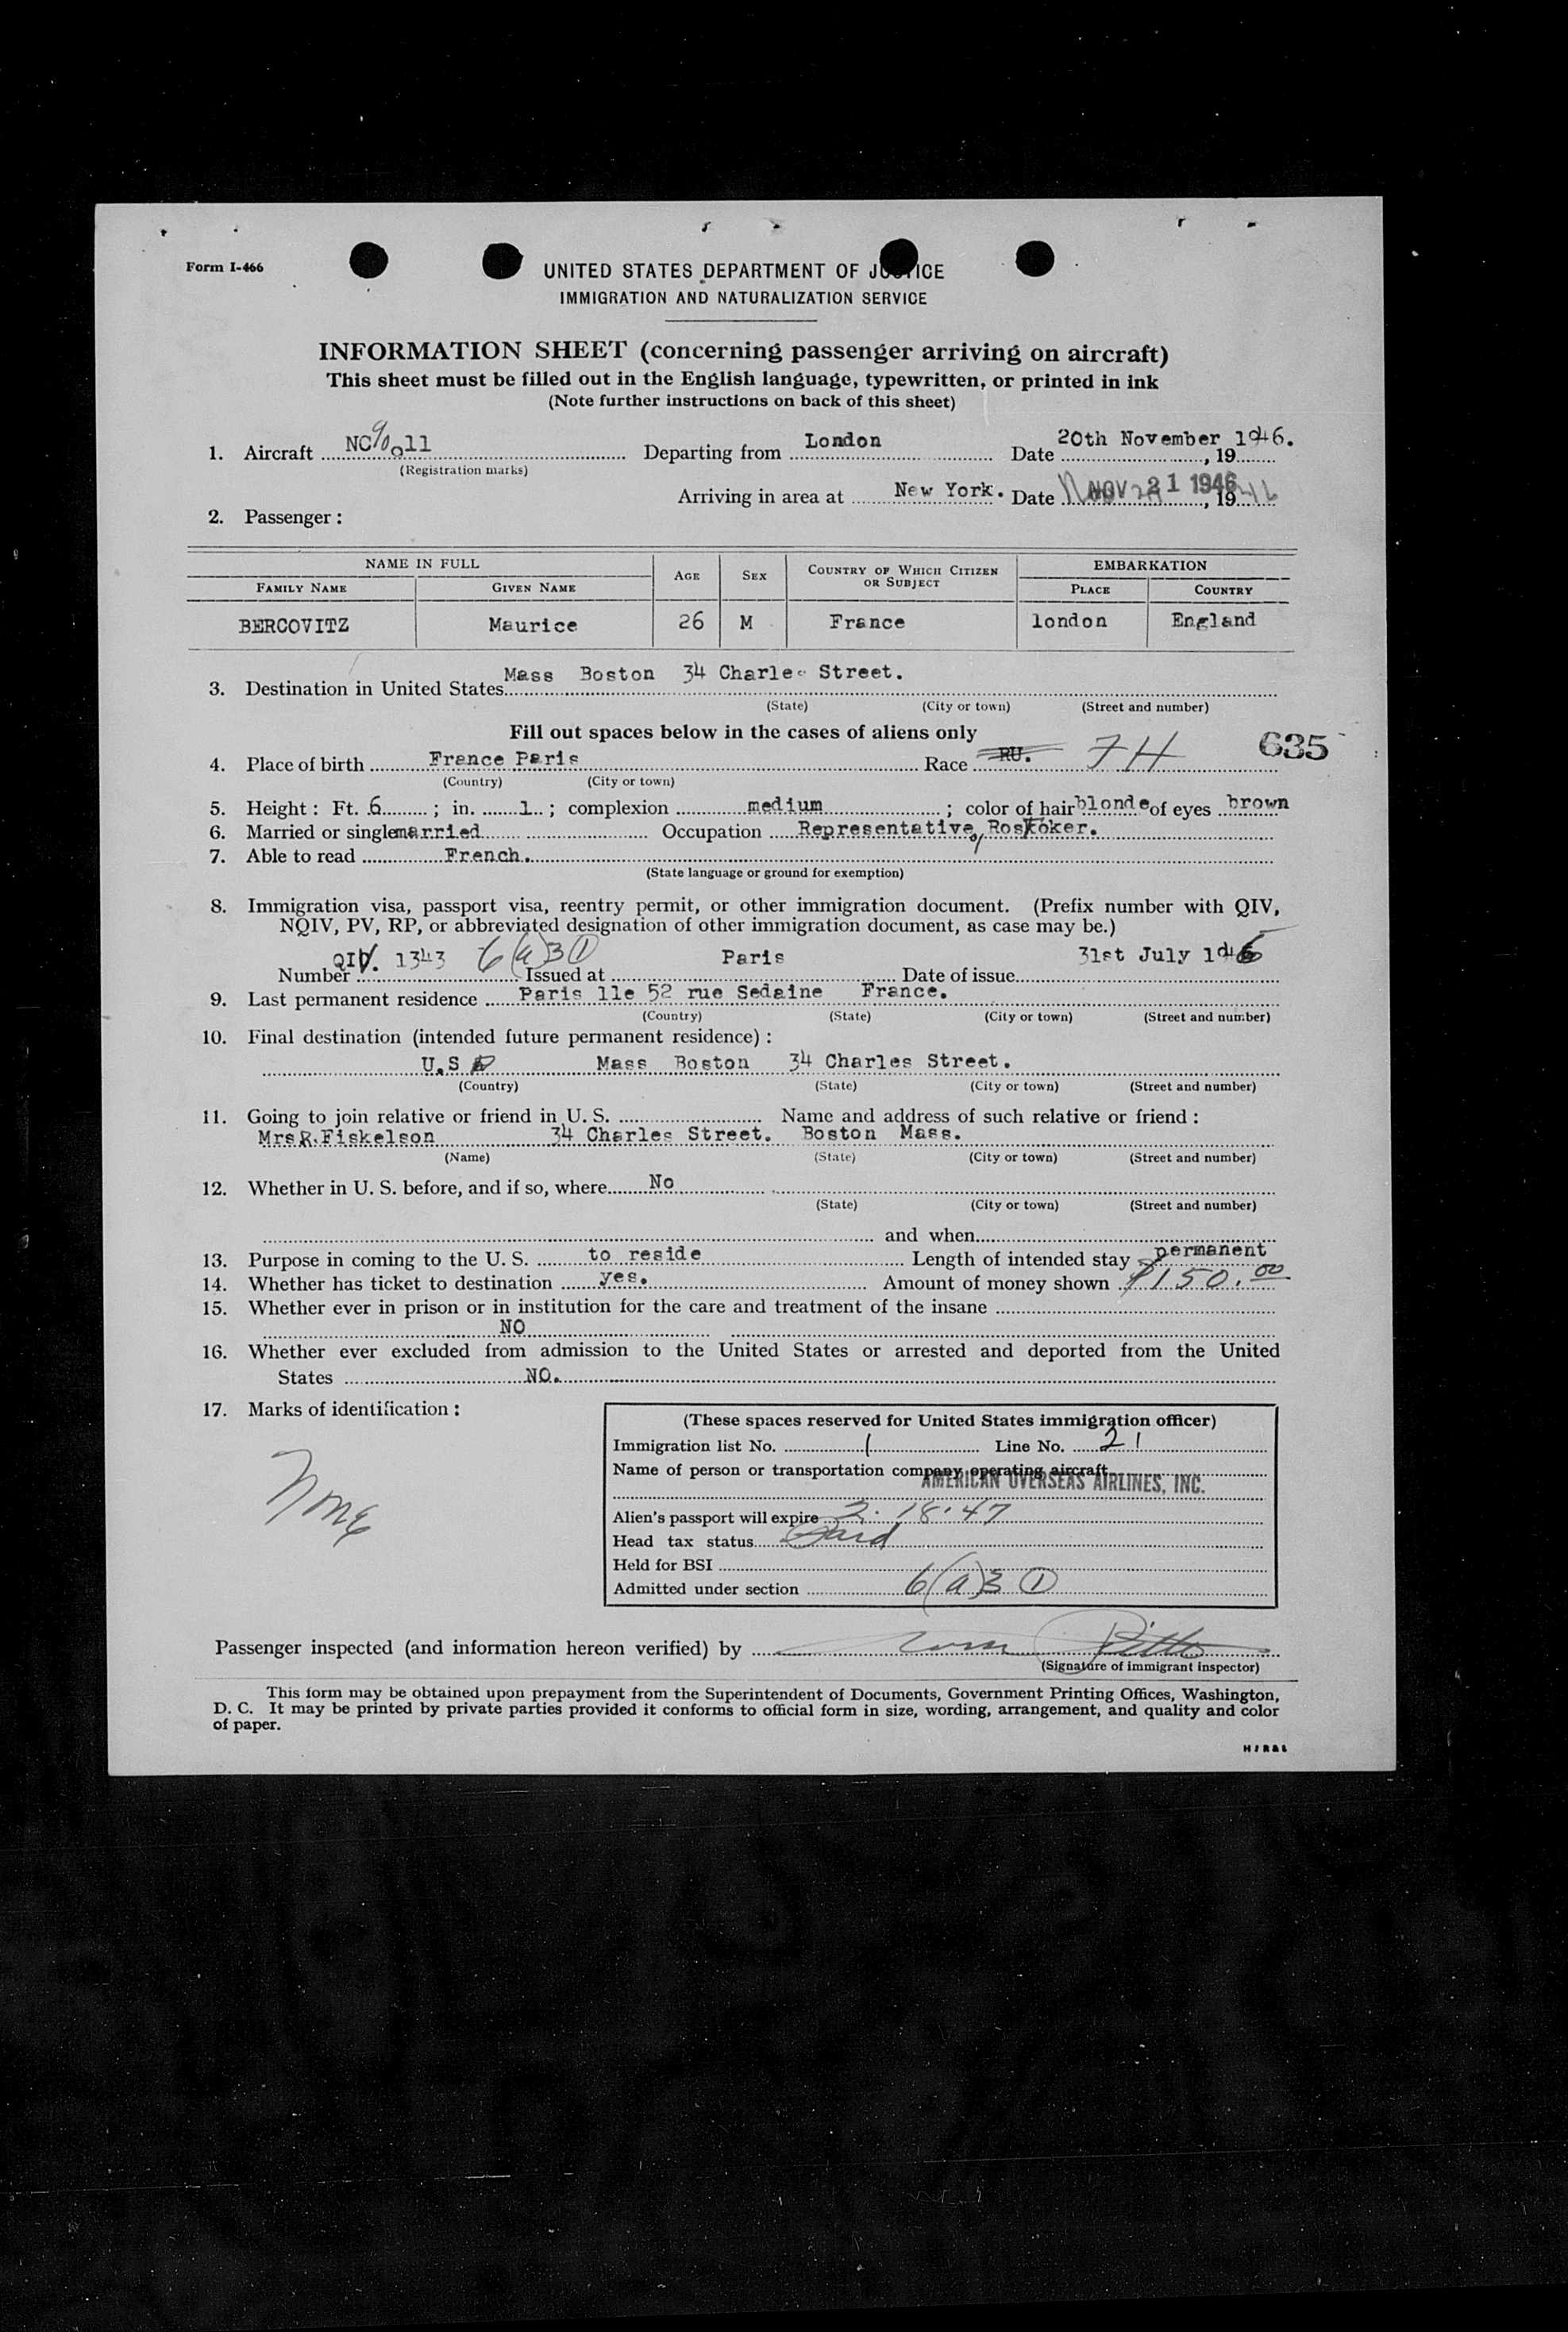 Form I-466
UNITED STATES DEPARTMENT OF JUSTICE
IMMIGRATION AND NATURALIZATION SERVICE
INFORMATION SHEET (concerning passenger arriving on aircraft)
This sheet must be filled out in the English language, typewritten, or printed in ink
(Note further instructions on back of this sheet)
1. Aircraft NC90011 Departing from London Date 20th November 1946. , 19
(Registration marks)
Arriving in area at New York. Date NOV 21 1946 , 19 46
2. Passenger :
NAME IN FULL AGE SEX COUNTRY OF WHICH CITIZEN OR SUBJECT EMBARKATION
FAMILY NAME GIVEN NAME PLACE COUNTRY
BERCOVITZ Maurice 26 M France london England
3. Destination in United States Mass Boston 34 Charles Street.
(State) (City or town) (Street and number)
Fill out spaces below in the cases of aliens only
635
4. Place of birth France Paris Race RU. 7H
(Country) (City or town)
5. Height : Ft. 6 ; in. 1 ; complexion medium ; color of hair blonde of eyes brown
6. Married or single married Occupation Representative, Roskoker.
7. Able to read French.
(State language or ground for exemption)
8. Immigration visa, passport visa, reentry permit, or other immigration document. (Prefix number with QIV,
NQIV, PV, RP, or abbreviated designation of other immigration document, as case may be.)
Number QIV. 1343 6(a)3 1 Issued at Paris Date of issue 31st July 1946
9. Last permanent residence Paris 11e 52 rue Sedaine France.
(Country) (State) (City or town) (Street and number)
10. Final destination (intended future permanent residence) :
U.S A Mass Boston 34 Charles Street.
(Country) (State) (City or town) (Street and number)
11. Going to join relative or friend in U. S. Name and address of such relative or friend :
Mrs R. Fiskelson 34 Charles Street. Boston Mass.
(Name) (State) (City or town) (Street and number)
12. Whether in U. S. before, and if so, where No
(State) (City or town) (Street and number)
and when
13. Purpose in coming to the U. S. to reside Length of intended stay permanent
14. Whether has ticket to destination yes. Amount of money shown $150.00
15. Whether ever in prison or in institution for the care and treatment of the insane
NO
16. Whether ever excluded from admission to the United States or arrested and deported from the United
States NO.
17. Marks of identification :
None
(These spaces reserved for United States immigration officer)
Immigration list No. 1 Line No. 21
Name of person or transportation company operating aircraft
AMERICAN OVERSEAS AIRLINES, INC.
Alien's passport will expire 2.18.47
Head tax status Paid
Held for BSI
Admitted under section 6(a)3 1
Passenger inspected (and information hereon verified) by
(Signature of immigrant inspector)
This form may be obtained upon prepayment from the Superintendent of Documents, Government Printing Offices, Washington,
D. C. It may be printed by private parties provided it conforms to official form in size, wording, arrangement, and quality and color
of paper.